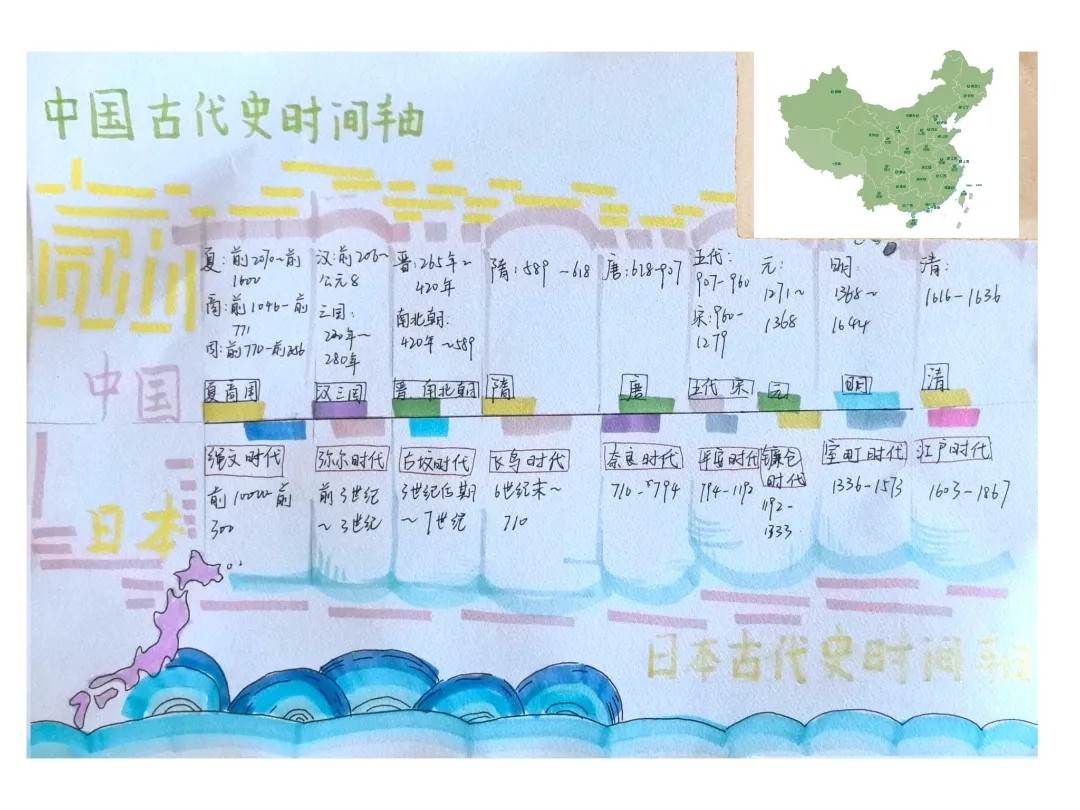 中国古代史时间轴
夏：前2070~前
1600
商：前1046-前
771
周：前770-前256
汉：前206~
公元8
三国：
220年~
280年
晋：265年~
420年
南北朝：
420年~589
隋：589~618
唐：618-907
五代：
907-960
宋：960-
1279
元：
1271~
1368
明：
1368~
1644
清：
1616-1636
夏商周
汉三国
晋 南北朝
隋
唐
五代 宋
元
明
清
中国
日本
绳文时代
前300
弥尔时代
前3世纪
~3世纪
古坟时代
3世纪后期
~7世纪
飞鸟时代
6世纪末~
710
奈良时代
710-794
平安时代
794-1192
镰仓
时代
1192-
1333
室町时代
1336-1573
江户时代
1603-1867
日本古代史时间轴